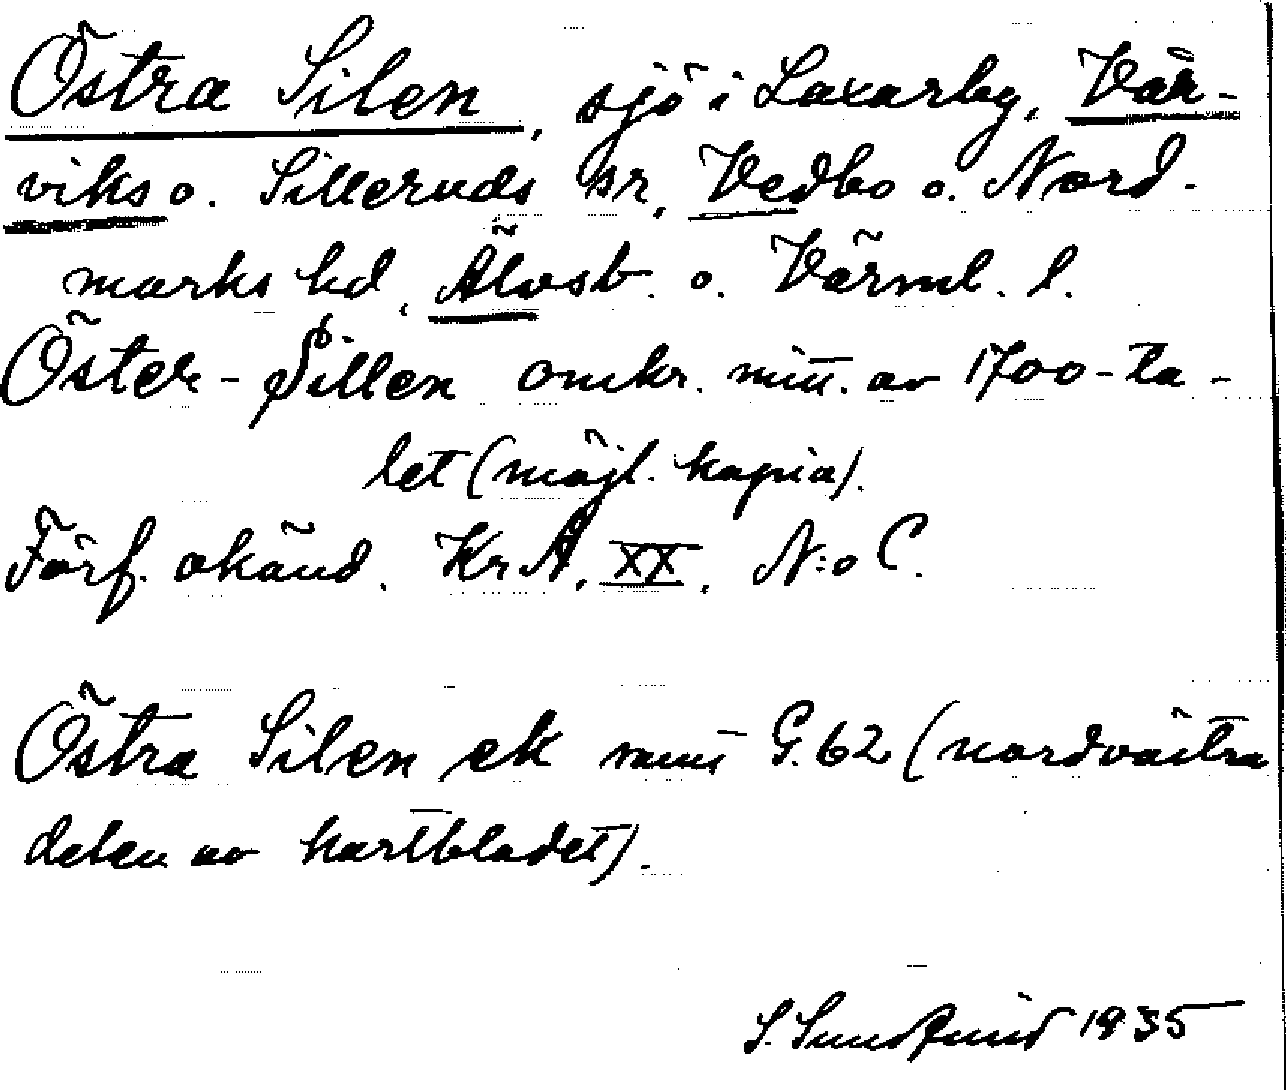 Östra Silen, sjö i Laxarby, Vår-
viks o. Silleruds snr, Vedbo o. Nord-
marks hd, Älvsb. o. Värml. l.
Öster-Sillen omkr. mitt. av 1700-ta-
let (möjl. kopia).
Förf. okänd. KrA. XX, N:o C.
Östra Silen ek samt G. 62 (nordvästra
delen av kartbladet).
S. 1935